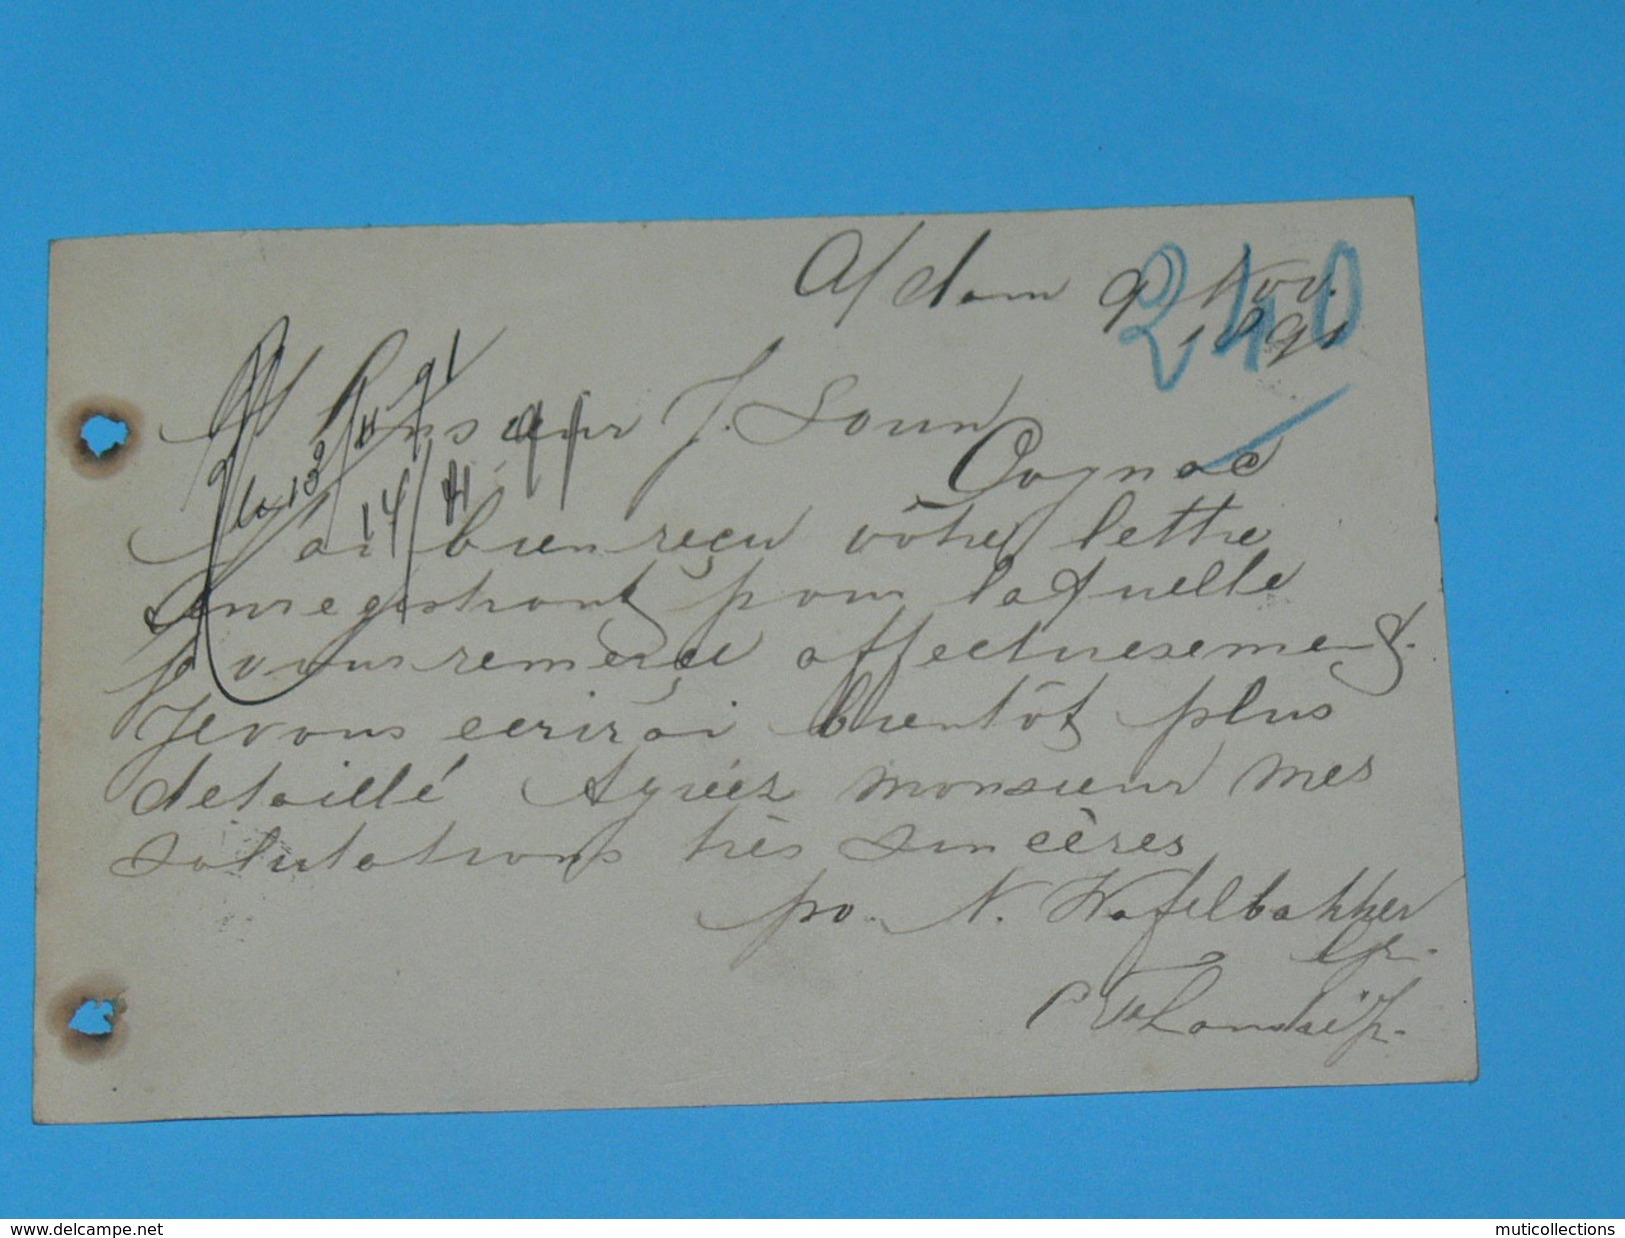 A/dam 9 Nov.
1891
240
Monsieur J. Louin
Cognac
13/11 91
14/11 91
J'ai bien reçu vôtre lettre
enregistrant pour laquelle
je vous remercie affectuesement.
Je vous ecrirai bientôt plus
detaillé Agréez monsieur mes
salutations très sincères
po. N. Wafelbakker
www.delcampe.net
muticollections